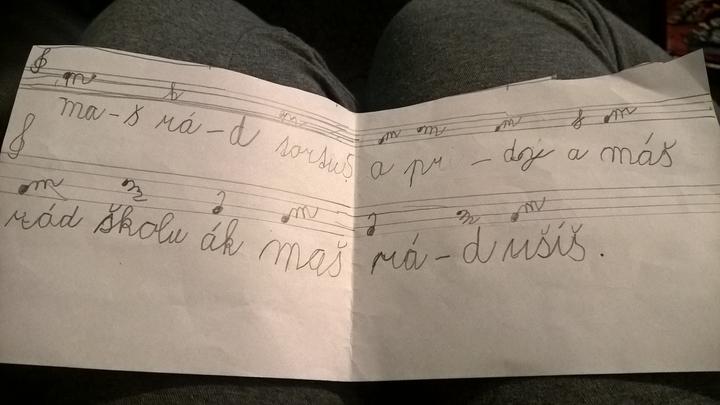 ma-š rá-d tortuš a pr - dzi a máš
rád školu ák maš rá-d ušíš.